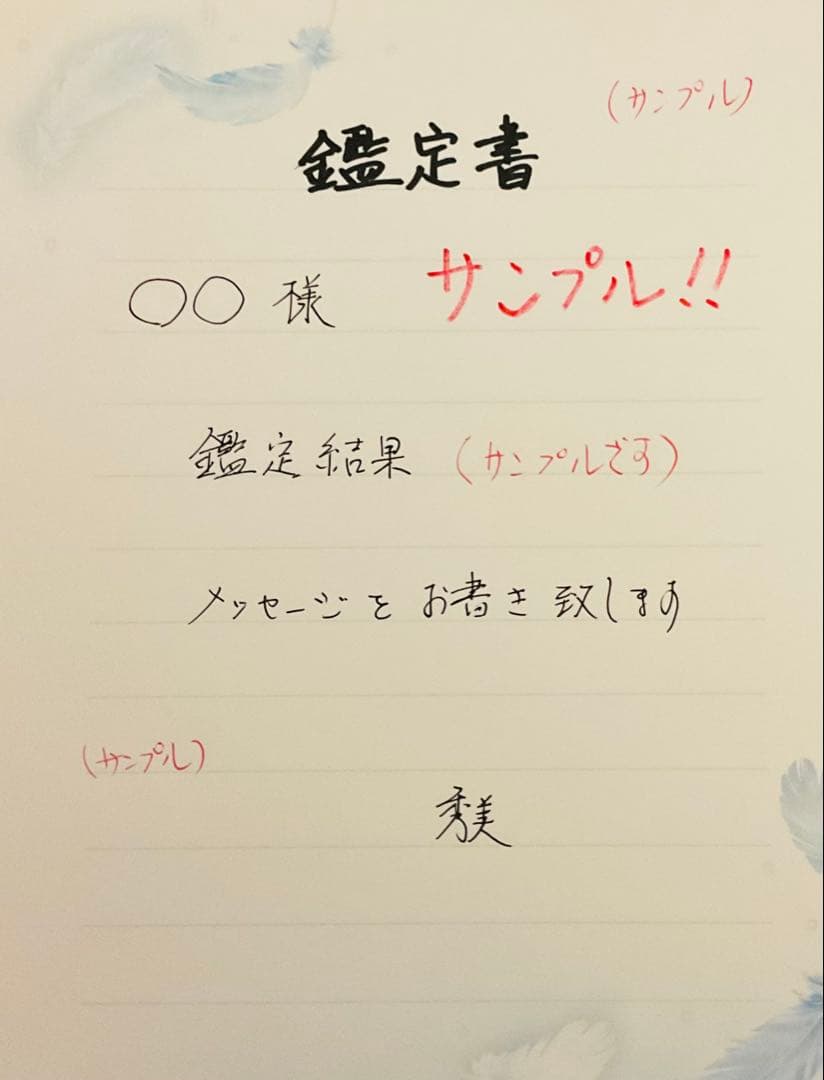 (サンプル)
鑑定書
○○様 サンプル!!
鑑定結果 (サンプルです)
メッセージをお書き致します
(サンプル)
秀美